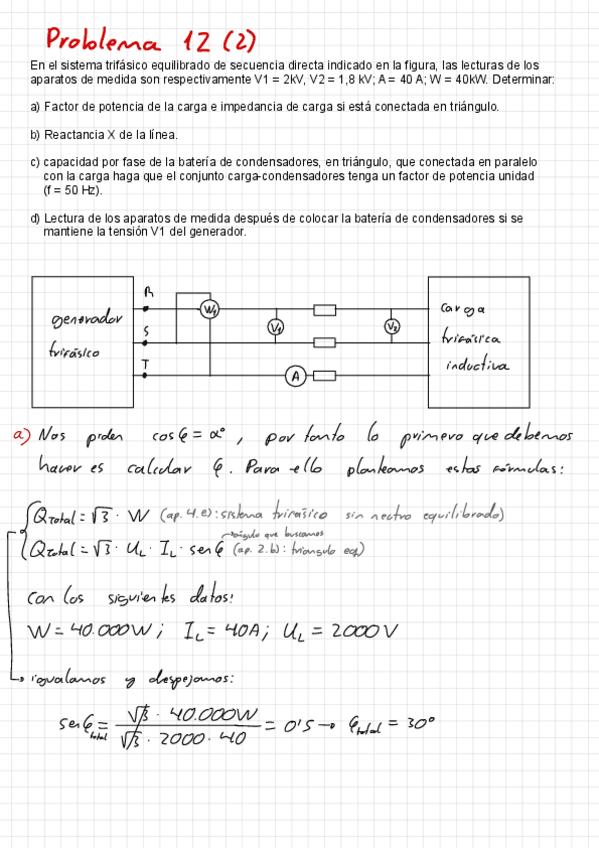 Problema 12 (2)
En el sistema trifásico equilibrado de secuencia directa indicado en la figura, las lecturas de los
aparatos de medida son respectivamente V1 = 2kV, V2 = 1,8 kV; A = 40 A; W = 40kW. Determinar:
a) Factor de potencia de la carga e impedancia de carga si está conectada en triángulo.
b) Reactancia X de la línea.
c) capacidad por fase de la batería de condensadores, en triángulo, que conectada en paralelo
con la carga haga que el conjunto carga-condensadores tenga un factor de potencia unidad
(f = 50 Hz).
d) Lectura de los aparatos de medida después de colocar la batería de condensadores si se
mantiene la tensión V1 del generador.
generador
trifásico
R
S
T
W1
V1
V2
A
carga
trifásica
inductiva
a) Nos piden cos φ = α°, por tanto lo primero que debemos
hacer es calcular φ. Para ello planteamos estas fórmulas:
QTotal = √3 · W (ap. 4.e): sistema trifásico sin neutro equilibrado)
ángulo que buscamos
QTotal = √3 · UL · IL · sen φ (ap. 2.b): triangulo eq)
Con los siguientes datos:
W = 40.000W; IL = 40A; UL = 2000V
igualamos y despejamos:
sen φtotal = √3 · 40.000W / √3 · 2000 · 40 = 0'5 → φtotal = 30°